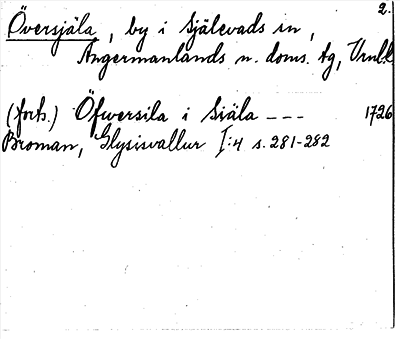 2.
Översjäla, by i Själevads sn,
Ångermanlands n. doms. tg, Vrnl.l
(forts.) Öfwersila i Siäla --- 1726
Broman, Glysisvallur I:4 s. 281-282